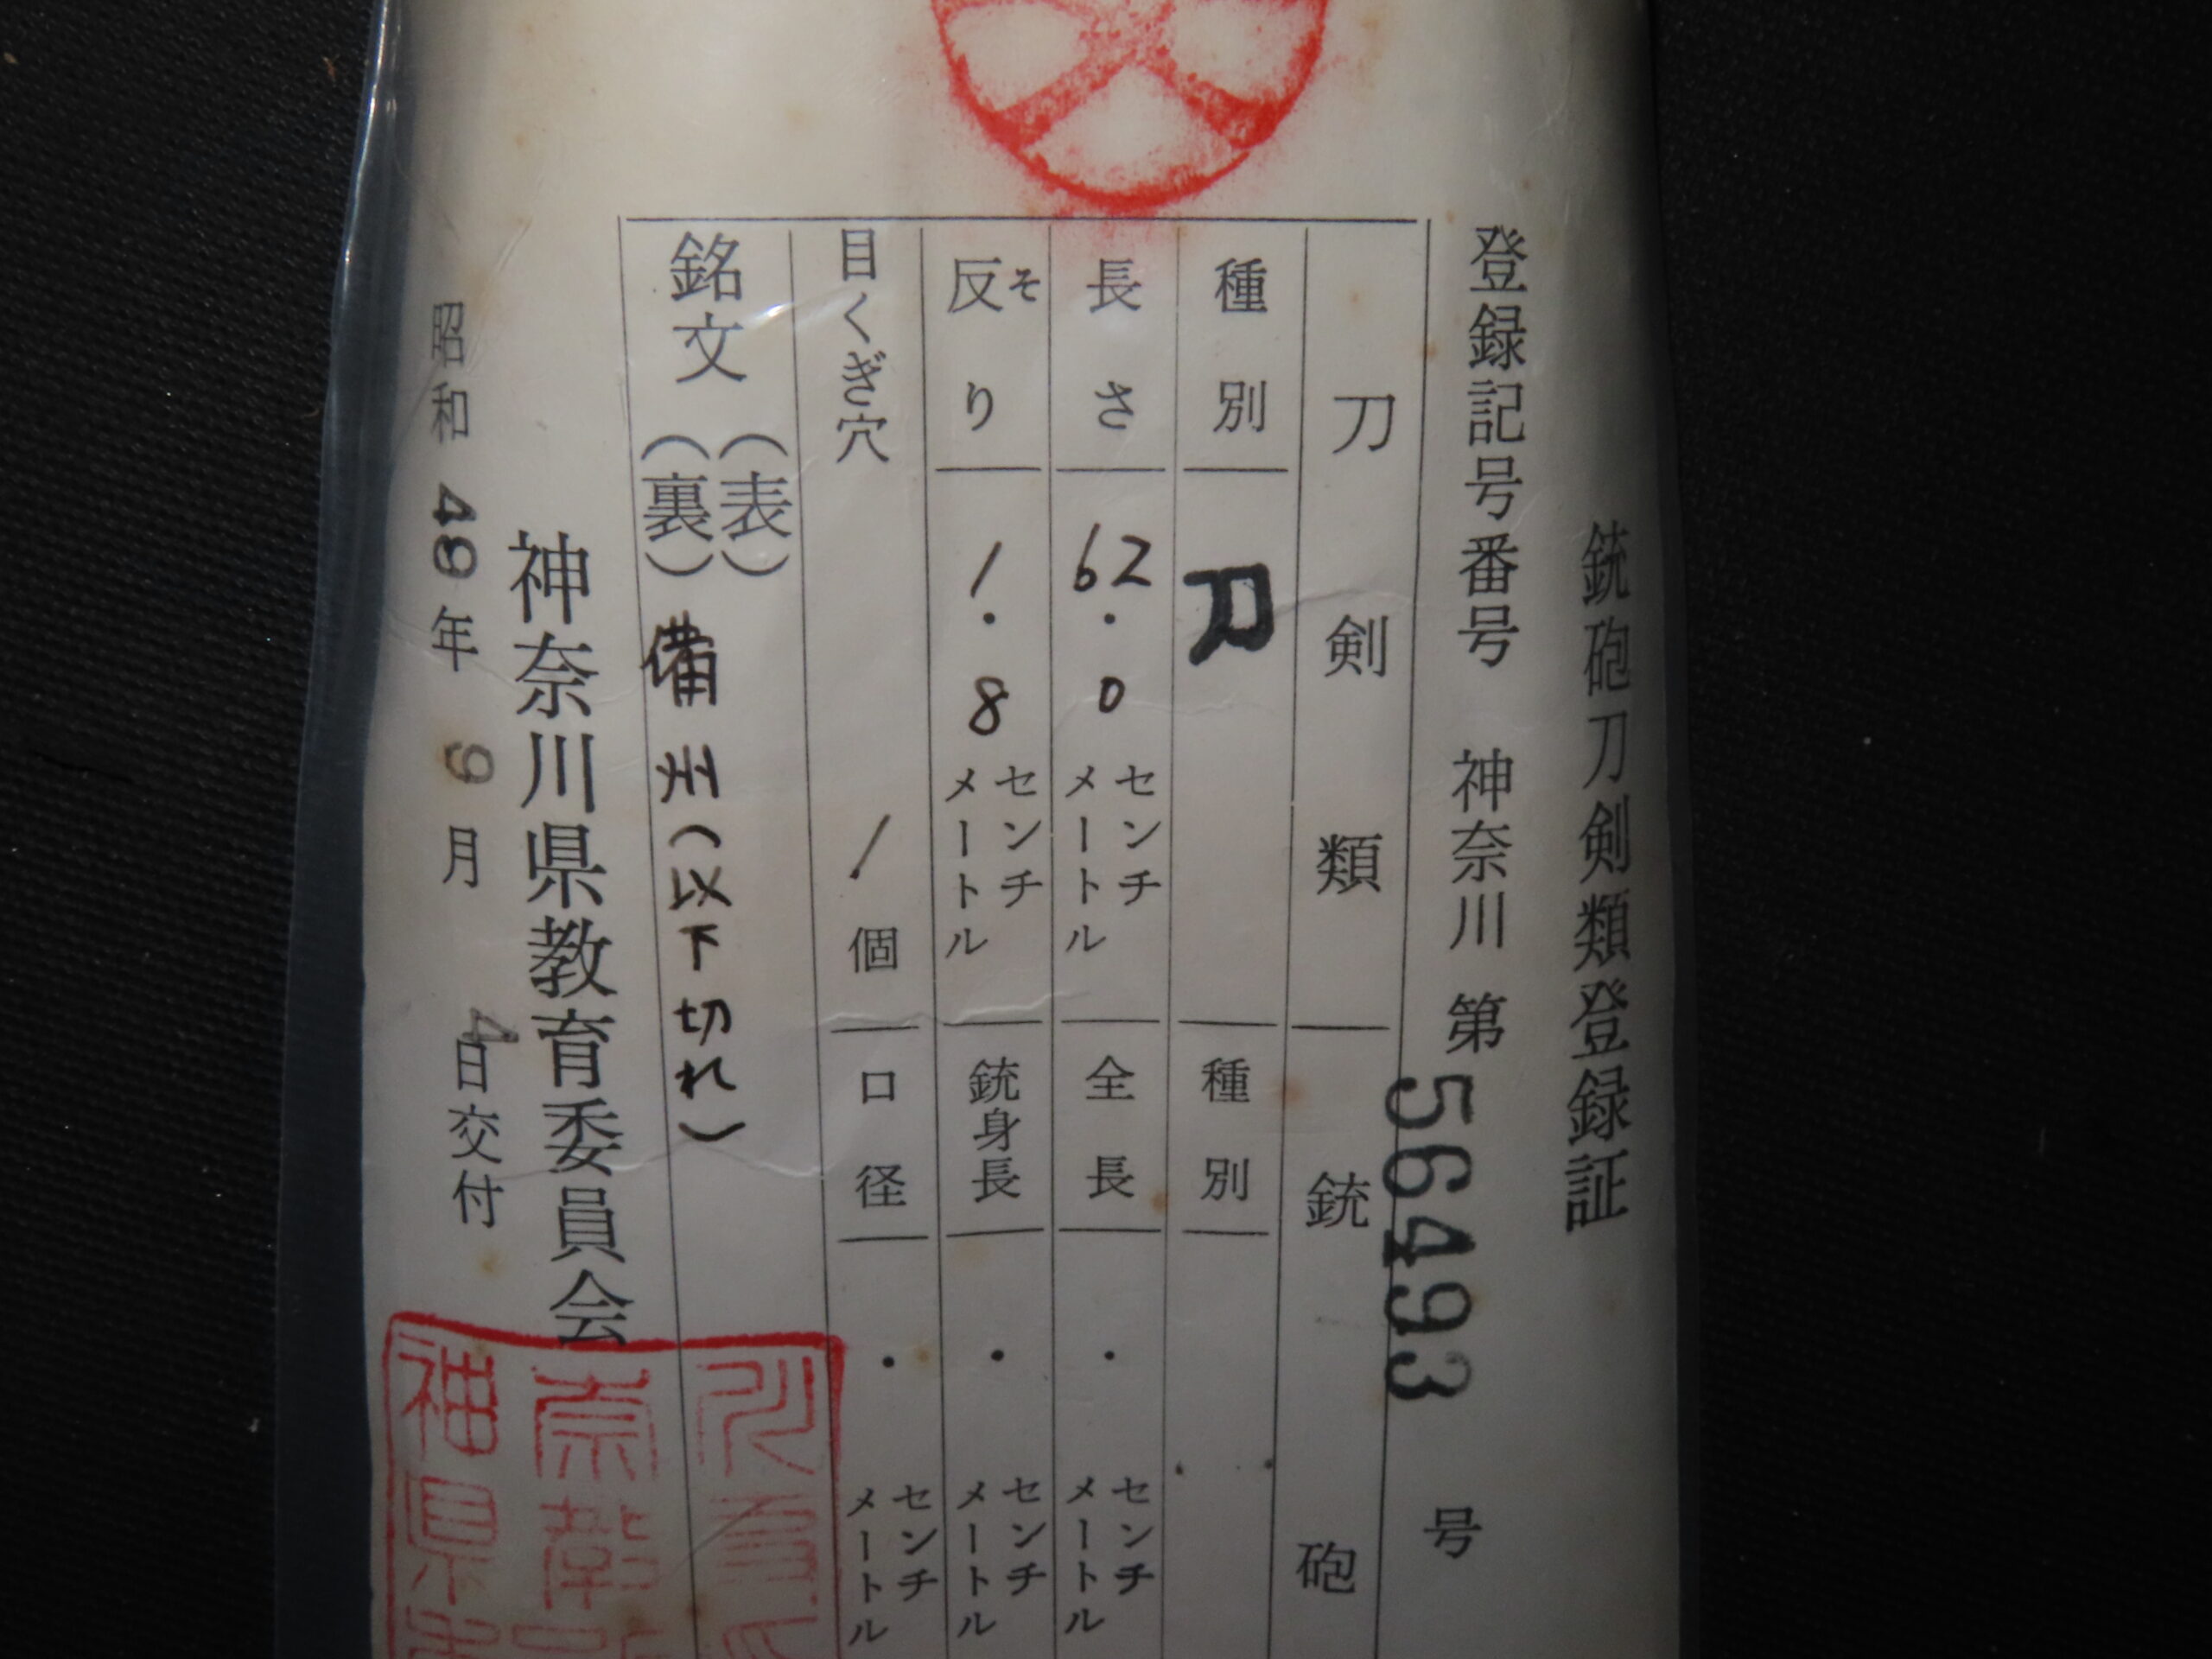 銃砲刀剣類登録証
登録記号番号 神奈川 第 56493 号
刀剣類 銃砲
種別 刀 種別
長さ 62.0 センチメートル 全長 . センチメートル
反り そ 1.8 センチメートル 銃身長 . センチメートル
目くぎ穴 1 個 口径 . センチメートル
銘文 (表)
(裏) 備州(以下切れ)
神奈川県教育委員会
昭和 49 年 9 月 4 日交付